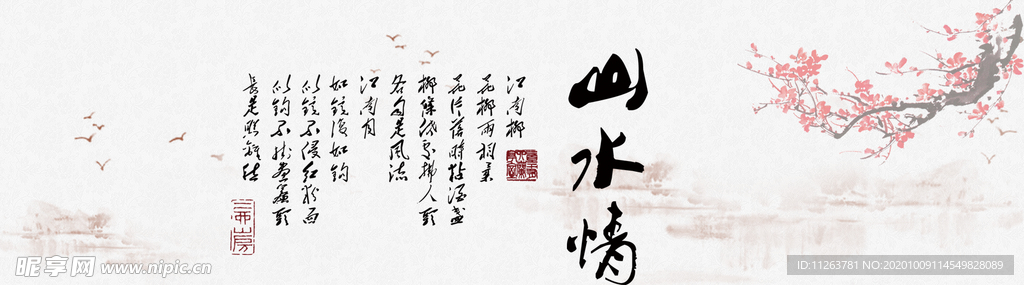 山水情
江南柳
花柳兩相柔
花片落時粘酒盞
柳條低處拂人頭
各自是風流
江南月
如鏡復如鉤
似鏡不侵紅粉面
似鉤不掛畫簾頭
長是照離愁
昵享网 www.nipic.cn
ID:11263781 NO:20201009114549828089